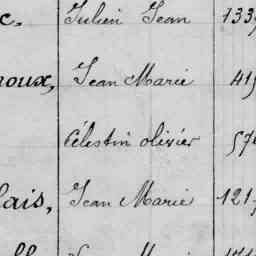 c, Julien Jean 133
roux, Jean Marie 41
Célestin olivier 57
lais, Jean Marie 121